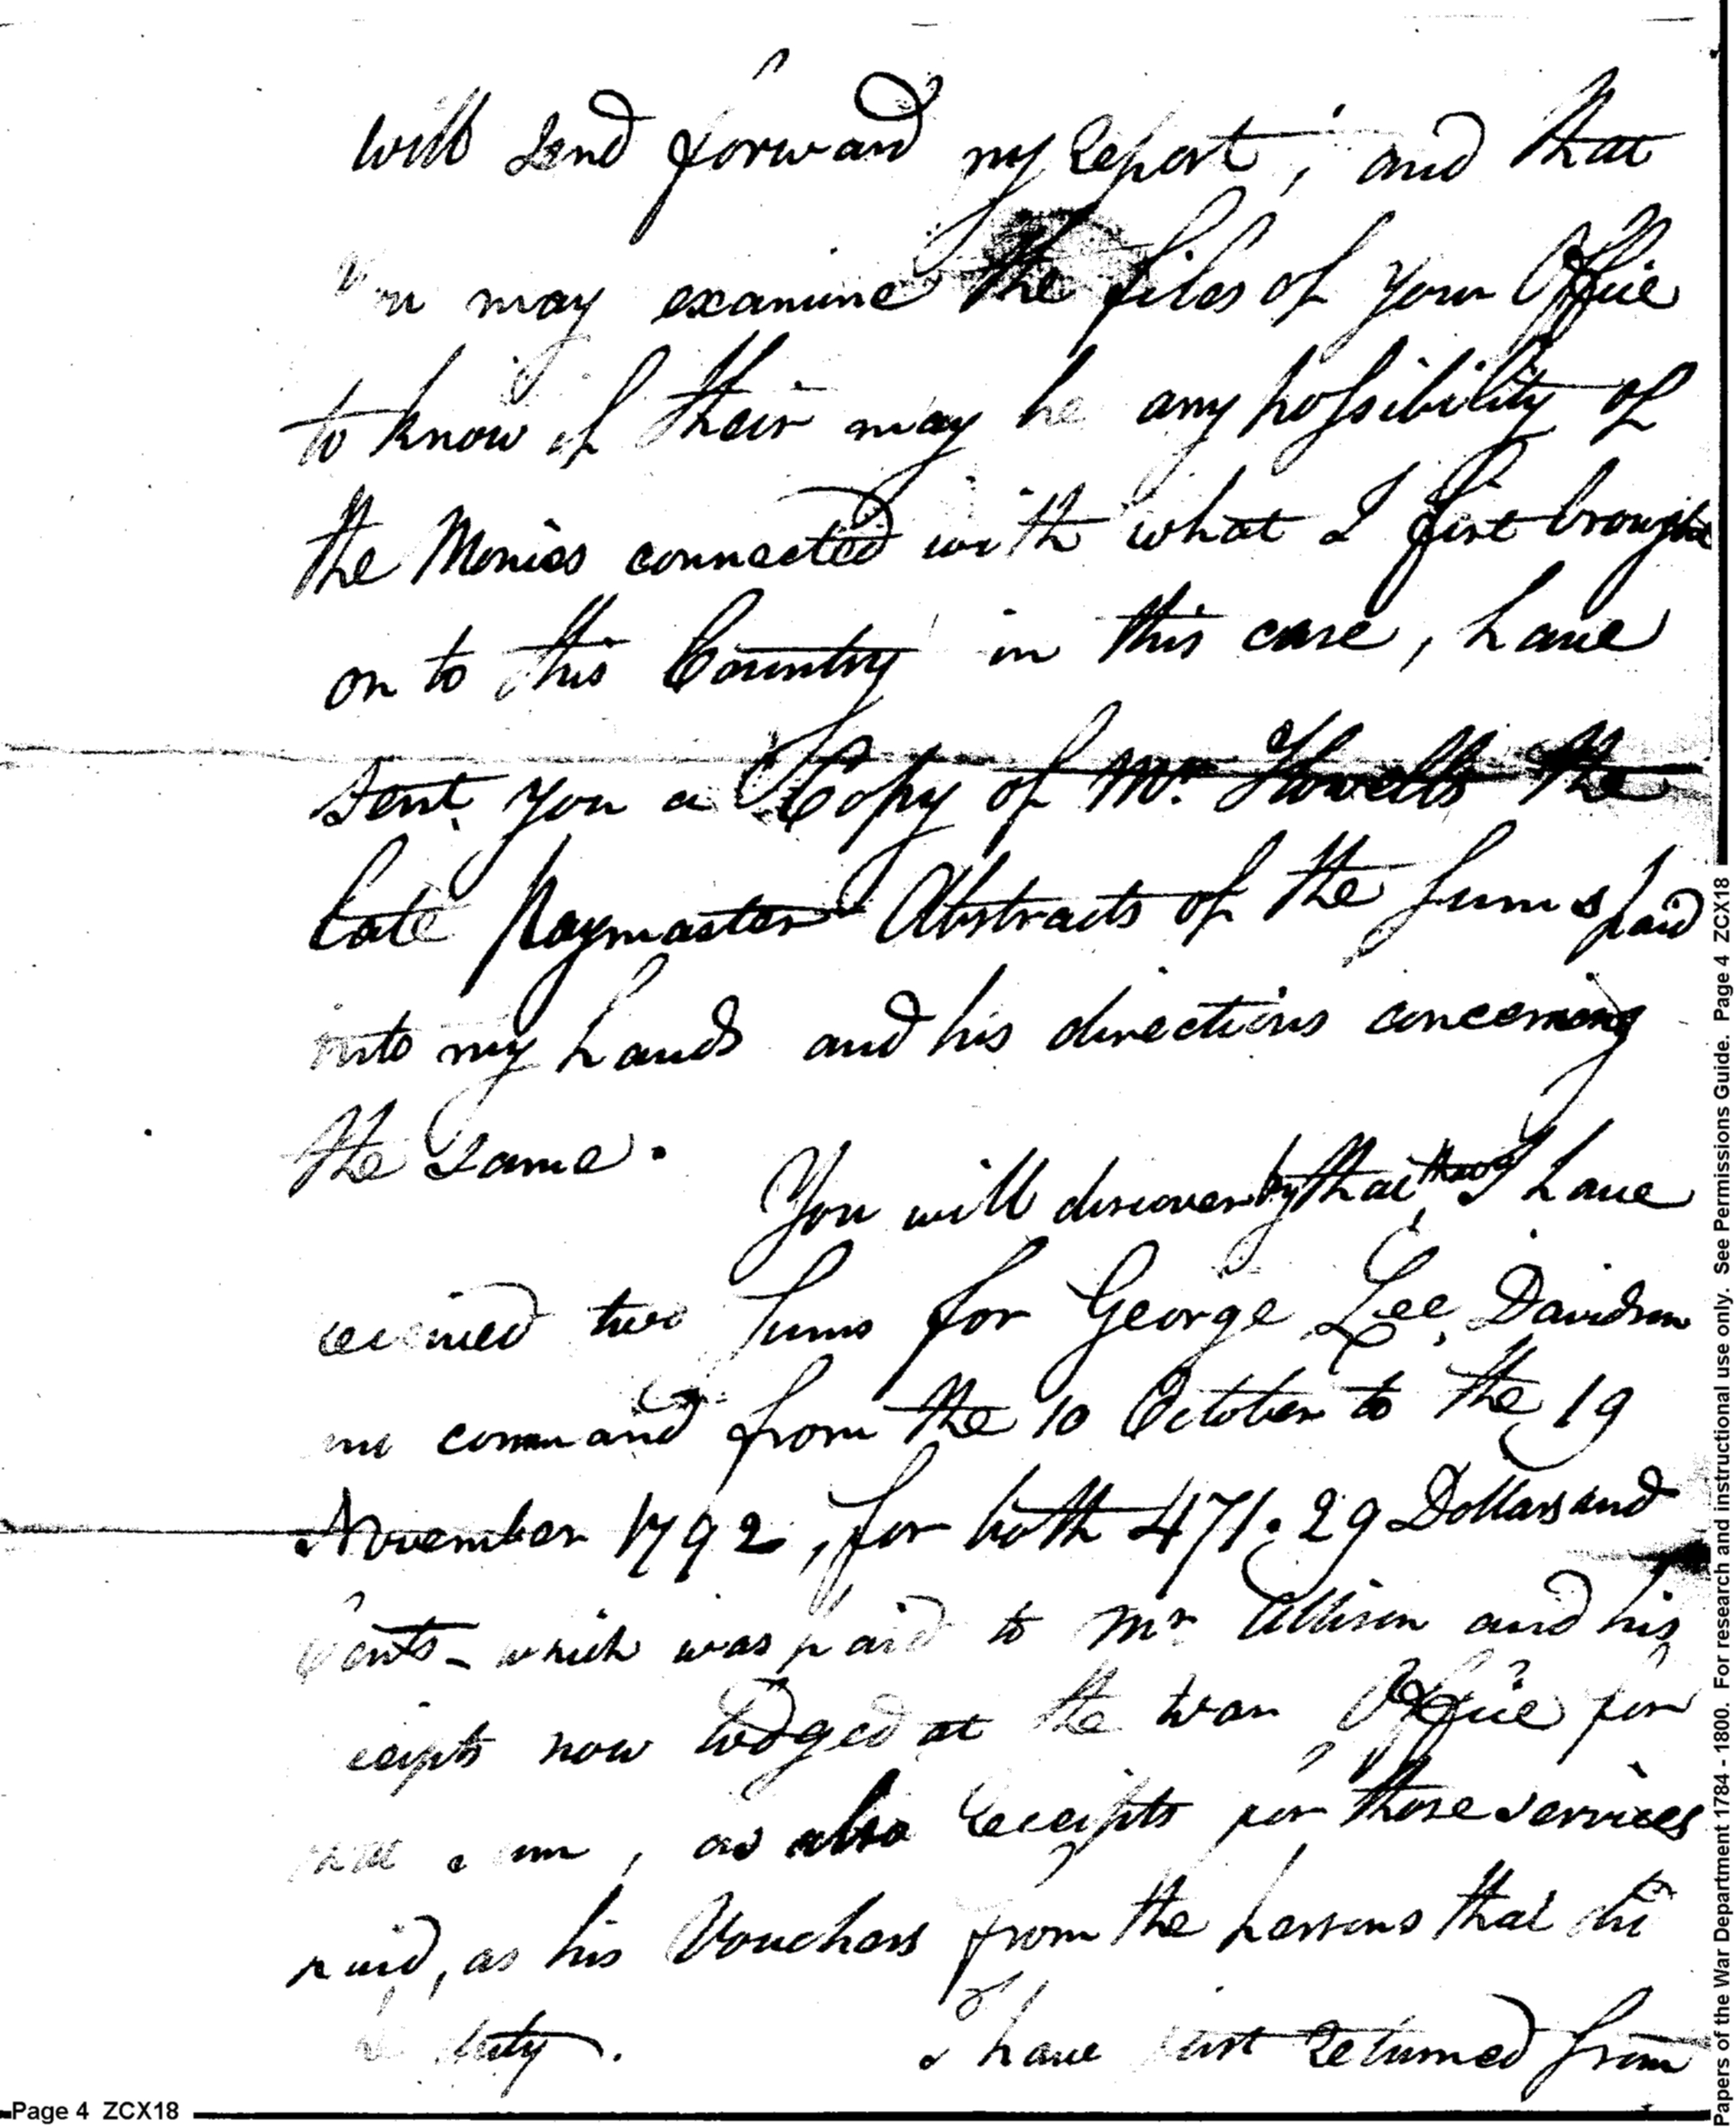 will send forward my Report, and that
you may examine the files of your Office
to know if their may be any possibility of
the Monies connected with what I first brought
on to this Country in this case, have
sent you a Copy of Mr. Howells the
late Paymaster Abstracts of the sums paid
into my hands and his directions concerning
the same.
You will discover by that I have
received two Sums for George Lee Davidson
command from the 10 October to the 19
November 1792, for both 471.29 Dollars and
Cents - which was paid to Mr Allison and his
receipts now lodged at the War Office for
sum, as also Receipts for those services
paid, as his Vouchers from the persons that did
duty. I have just Returned from
Page 4 ZCX18
Papers of the War Department 1784 - 1800. For research and instructional use only. See Permissions Guide. Page 4 ZCX18